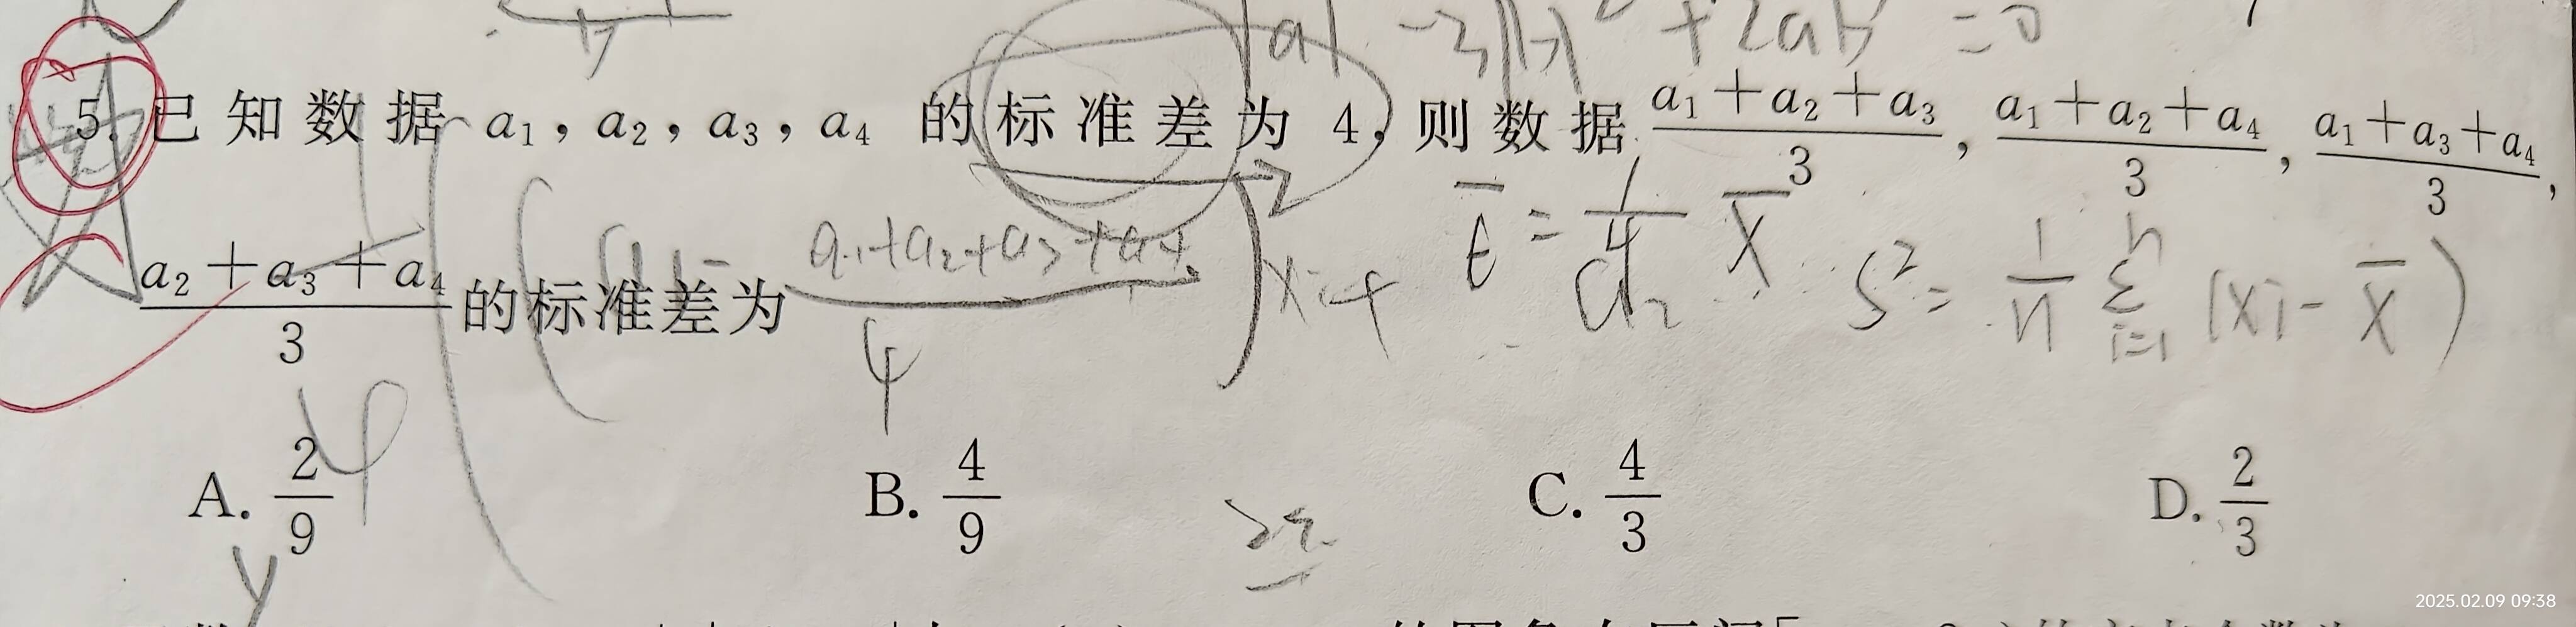 |a| -3|b|² + 2ab = 0
5. 已知数据 a₁, a₂, a₃, a₄ 的标准差为 4, 则数据 (a₁+a₂+a₃)/3, (a₁+a₂+a₄)/3, (a₁+a₃+a₄)/3,
(a₂+a₃+a₄)/3 的标准差为
(a₁+a₂+a₃+a₄)/4
S² = 1/n Σ i=1 n (xi - x̄)
A. 2/9 B. 4/9 C. 4/3 D. 2/3
2025.02.09 09:38